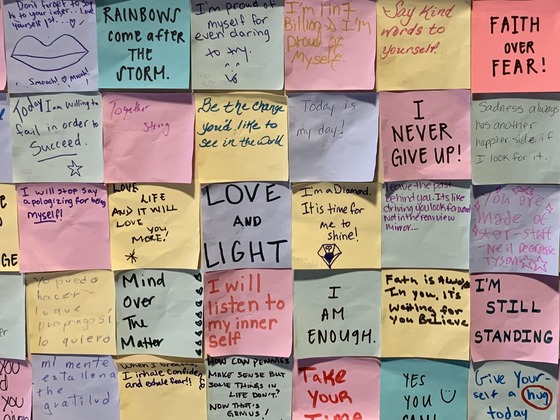 Don't forget to
to your
yourself 1st...
Smooch! Mwah!
RAINBOWS
come after
THE
STORM.
I'm proud of
myself for
even daring
to try.
I'm 1 in 7
Billion & I'm
Proud of
Myself.
Say Kind
words to
yourself.
FAITH
OVER
FEAR!
Today I am willing to
fail in order to
Succeed.
Together
Strong
Be the change
you'd like to
see in the world
Today is
my day!
I
NEVER
GIVE UP!
Sadness always
has another
happier side if
I look for it.
GE
I will stop say
apologizing for being
myself!
LOVE
LIFE
AND IT WILL
LOVE
YOU
MORE!
LOVE
AND
LIGHT
I'm a Diamond.
It is time for
me to
shine!
Leave the past
behind you. Its like
driving you look forward
not in the rearview
mirror...
You are
made of
star-stuff
-Neil Degrasse
Tyson
Yo puedo
hacer
lo que
propongo si
lo quiero
Mind
Over
The
Matter
I will
listen to
my inner
self
I
AM
ENOUGH.
Faith is Always
In you, it's
waiting for
you Believe
I'M
STILL
STANDING
you
mi mente
esta llena
de
gratitud
When I breathe
I inhale confidence
and exhale fear!!
HOW CAN PENNIES
MAKE SENSE BUT
SOME THINGS IN
LIFE DON'T?
NOW THAT'S
GENIUS!
TAKE
YOUR
Time
YES
YOU
CAN!
Give Your
self a hug
today